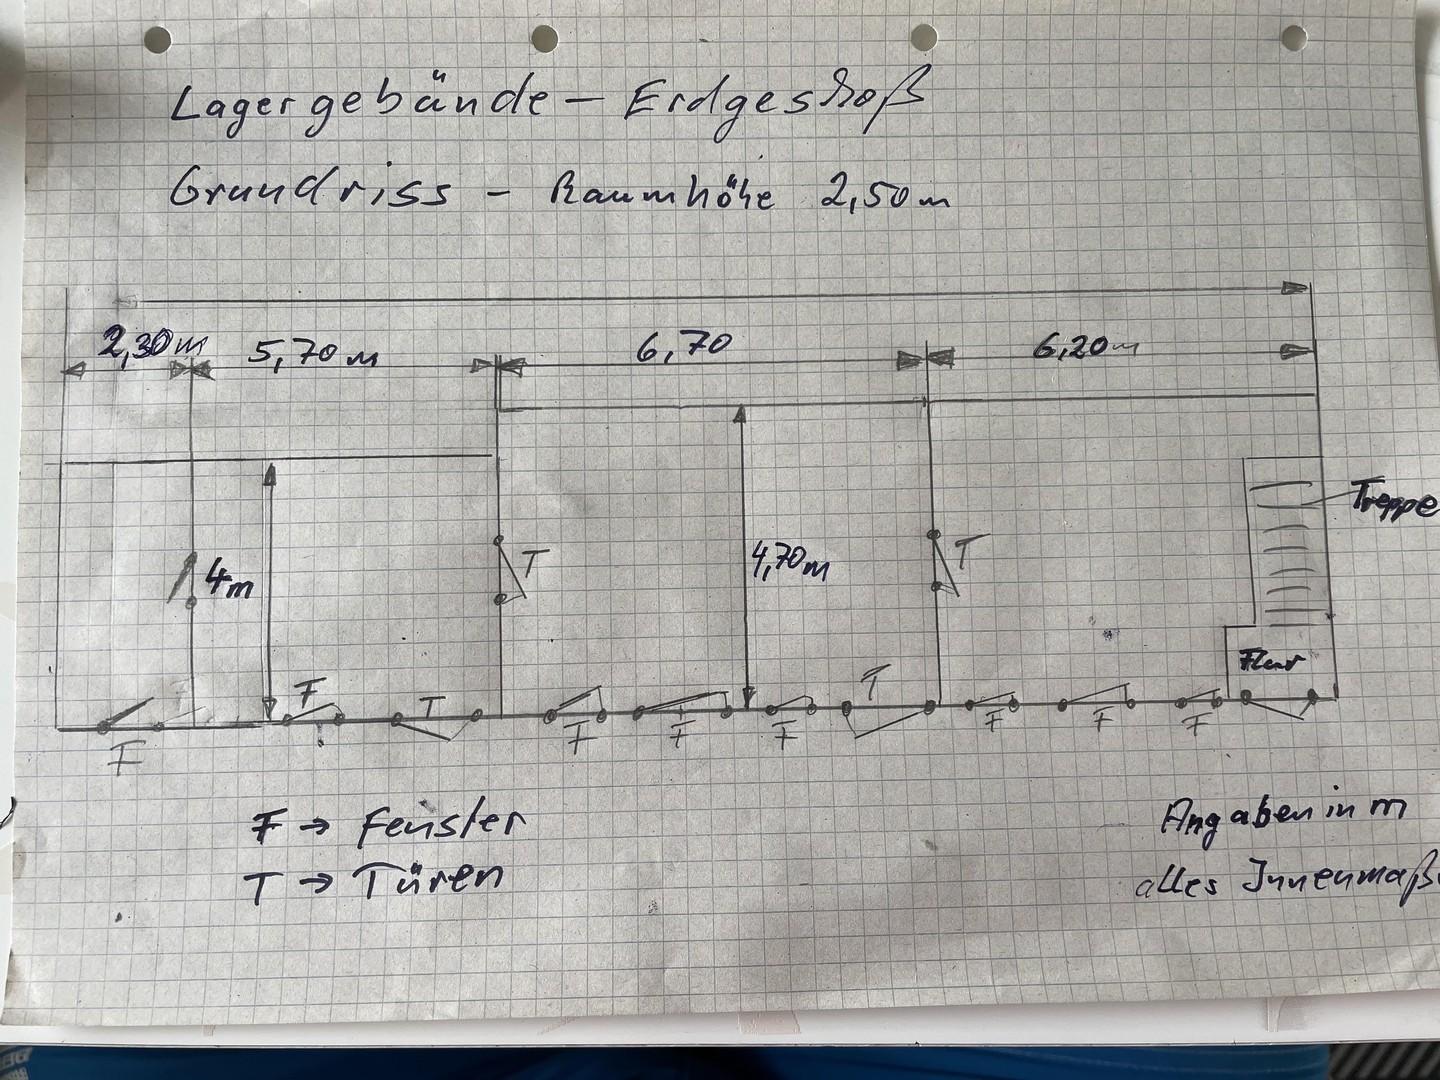 Lagergebäude – Erdgeschoß
Grundriss – Raumhöhe 2,50m
2,30m
5,70m
6,70
6,20m
Treppe
T
T
4m
4,70m
Flur
F
T
T
F
F
F
F
F
F
F
F → Fenster
T → Türen
Angaben in m
alles Innenmaß